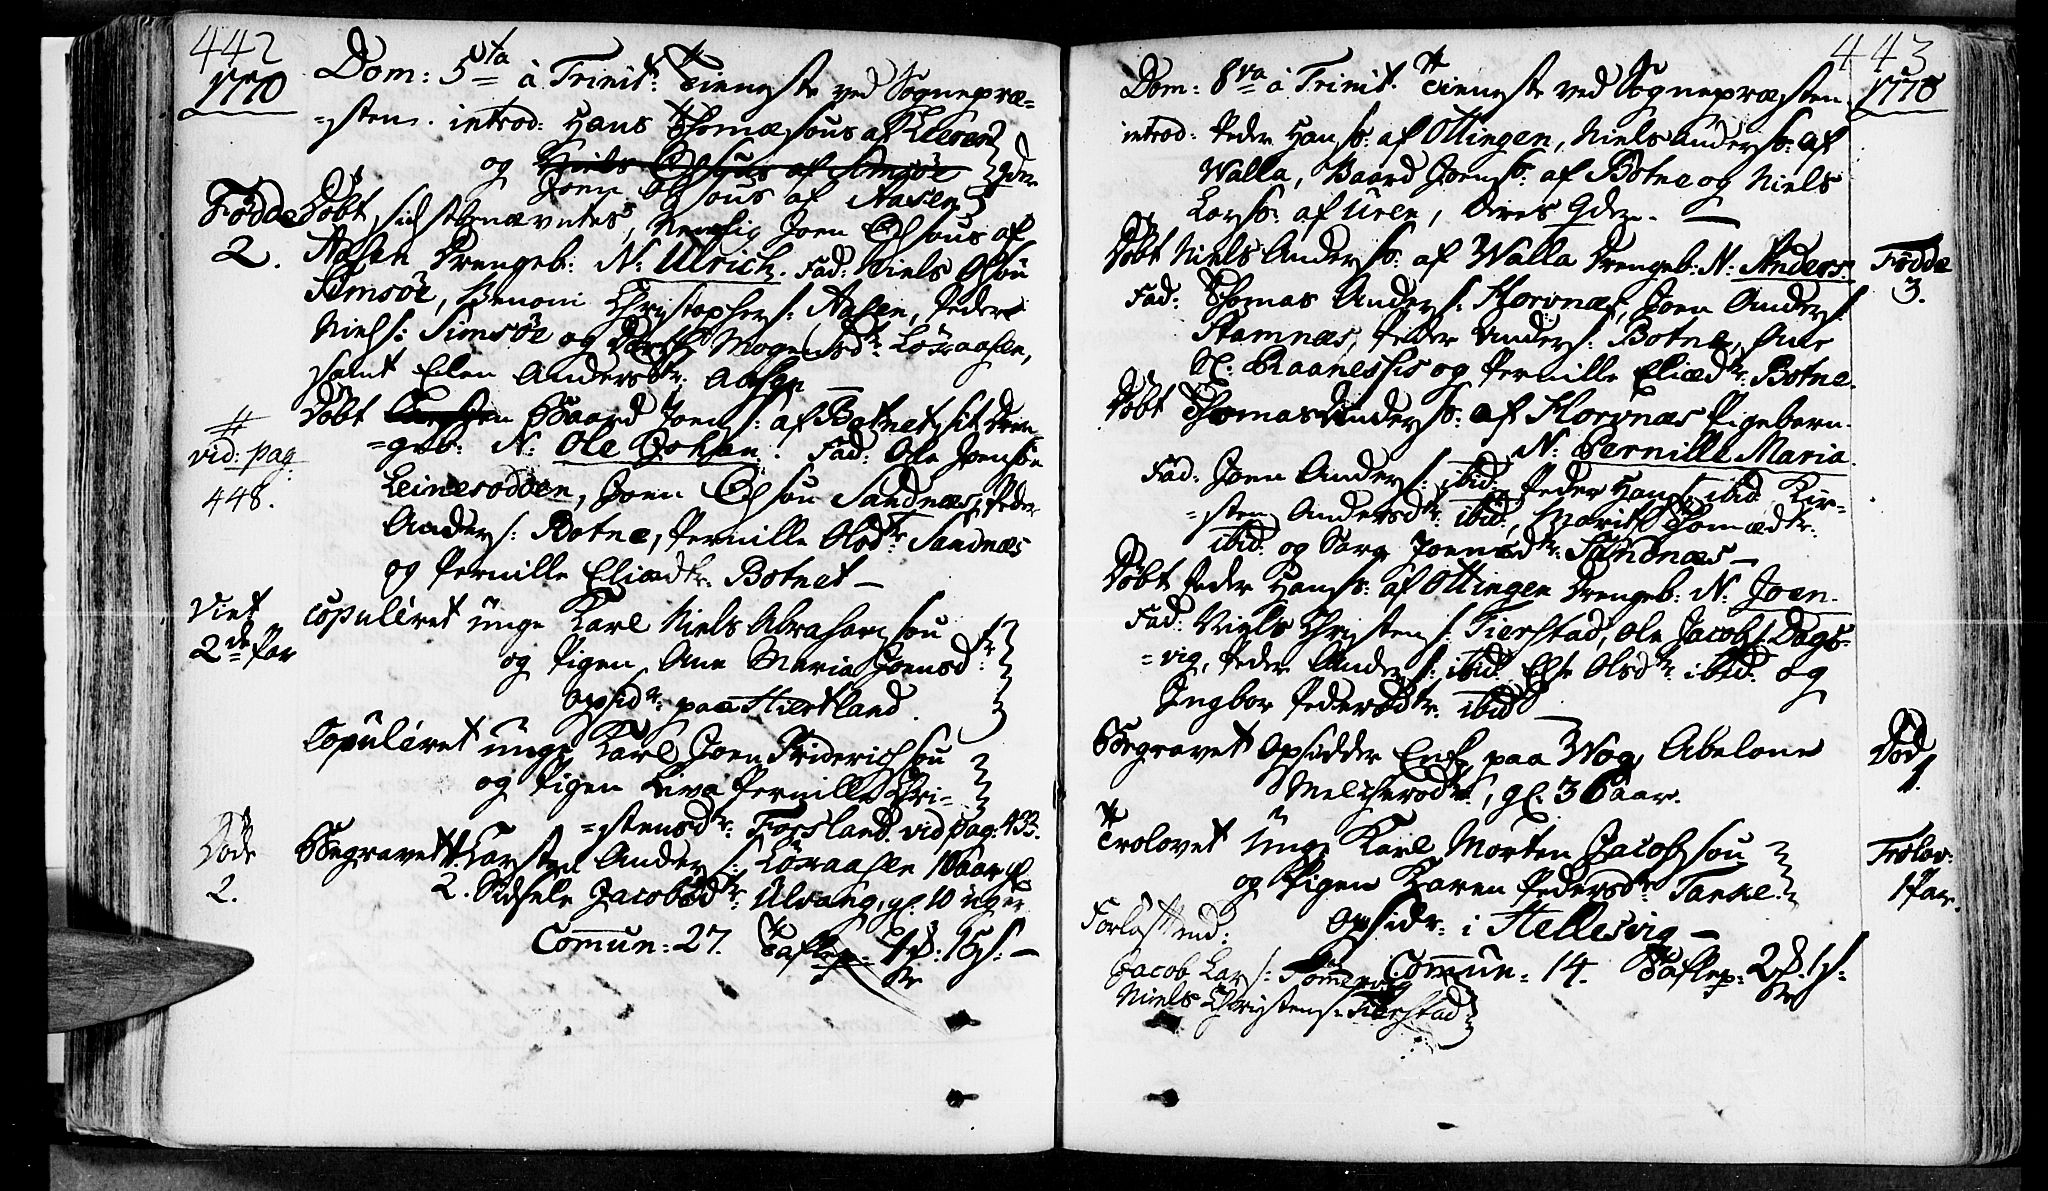 442
1770
Dom: 5ta à Trinit: Tieneste ved Sognepræ=
=sten. introd: Hans Thomæsøns af
og Niels Olsøns af Simsøe
Joen Olsøns af Aasen
Qdr
Fødde
2.
Døbt sidstbenævntes, Nemlig Joen Olsøns af
Aasen Drengeb: N: Ulrich. Fad: Niels Olsøn
Simsøe, Benoni Christophers: Aasen, Peder
Niels: Simsøe og Mogensdr: Løsaasen,
samt Elen Andersdr: Aasen —
Døbt Baard Joens: af Botnet sit Dren=
=geb: N: Ole Johan. Fad: Ole Joensøn
Leinesodden, Joen Olsøn Sandnæs, Peder
Anders: Botne, Pernille Olsdr: Sandnæs
og Pernille Eliædr: Botnet —
#
vid: pag:
448.
Viet
2de Par
Copuleret unge Karl Niels Abrahamsøn
og Pigen Ane Maria Joensdr:
opsidr: paa Hiertland.
Copuleret unge Karl Joen Friderichsøn
og Pigen Liva Pernille Chri=
=stensdr: Forsland. vid pag: 433.
Døde
2.
Begravet 1. Carsten Anders: Løsaasen 18 aar gl
2. Sidsele Jacobsdr: Ulvang, gl. 10 uger
Comun: 27. Taflep: 4 : 16 s: —
443
1770
Dom: 8va à Trinit. Tieneste ved Sognepræsten
introd: Peder Hans: af Ottingen, Niels Anders: af
Walla, Baard Joens: af Botne og Niels
Lars: af Uren, deres Qdr. —
Døbt Niels Anders: af Walla Drengeb: N: Anders.
Fad: Thomas Anders: Korsnæs, Joen Anders:
Stamnæs, Peder Anders: Botne, Ane
Ol: Raanessis og Pernille Eliædr: Botne.
Fødde
3.
Døbt Thomas Anders: af Korsnæs Pigebarn.
N: Pernille Maria.
Fad: Joen Anders: ibid: Peder Hans: ibid Kir=
=sten Andersdr: ibid:, Marit Thomædr:
ibid: og Sara Joensdr: Sandnæs —
Døbt Peder Hans: af Ottingen Drengeb: N: Joen.
Fad: Niels Christens: Tierstad, Ole Jacobs: Dags=
=vig, Peder Anders: ibid: Else Olsdr: ibid: og
Ingbor Pedersdr: ibid —
Begravet Opsidder Enke paa Wog, Abelone
Melchersdr:, gl: 36 aar.
Død
1.
Trolovet Unge Karl Morten Jacobsøn
og Pigen Karen Pedersdr: Tanke
opsidr: i Hellesvig —
Trolov:
1 Par.
Forlostend:
Jacob Lars:
Niels Christens: Tierstad
Comun: 14. Taflep: 2 . 1 s: